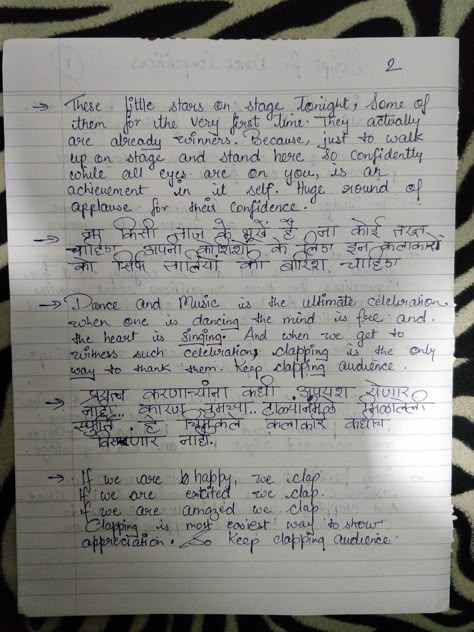 2
→ These little stars on stage tonight, Some of
them for the very first time. They actually
are already winners. Because, just to walk
up on stage and stand here so confidently
while all eyes are on you, is an
achievement in it self. Huge round of
applause for their confidence.
→ ना किसी ताज के भूखे है ना कोई तख्त
चाहिए अपनी कोशिशों के लिए इन कलाकारों
को सिर्फ तालियों की बारिश चाहिए
→ Dance and Music is the ultimate celebration
when one is dancing the mind is free and
the heart is singing. And when we get to
witness such celebrations, clapping is the only
way to thank them. Keep clapping audience.
→ प्रयत्न करणाऱ्यांना कधी अपयश येणार
नाही... कारण तुमच्या टाळ्यांनमुळे मिळालेली
स्फूर्ति हे चिमुकले कलाकार कधीच
विसरणार नाही.
→ If we are happy, we clap
If we are excited we clap.
If we are amazed we clap
Clapping is most easiest way to show
appreciation. So Keep clapping audience.